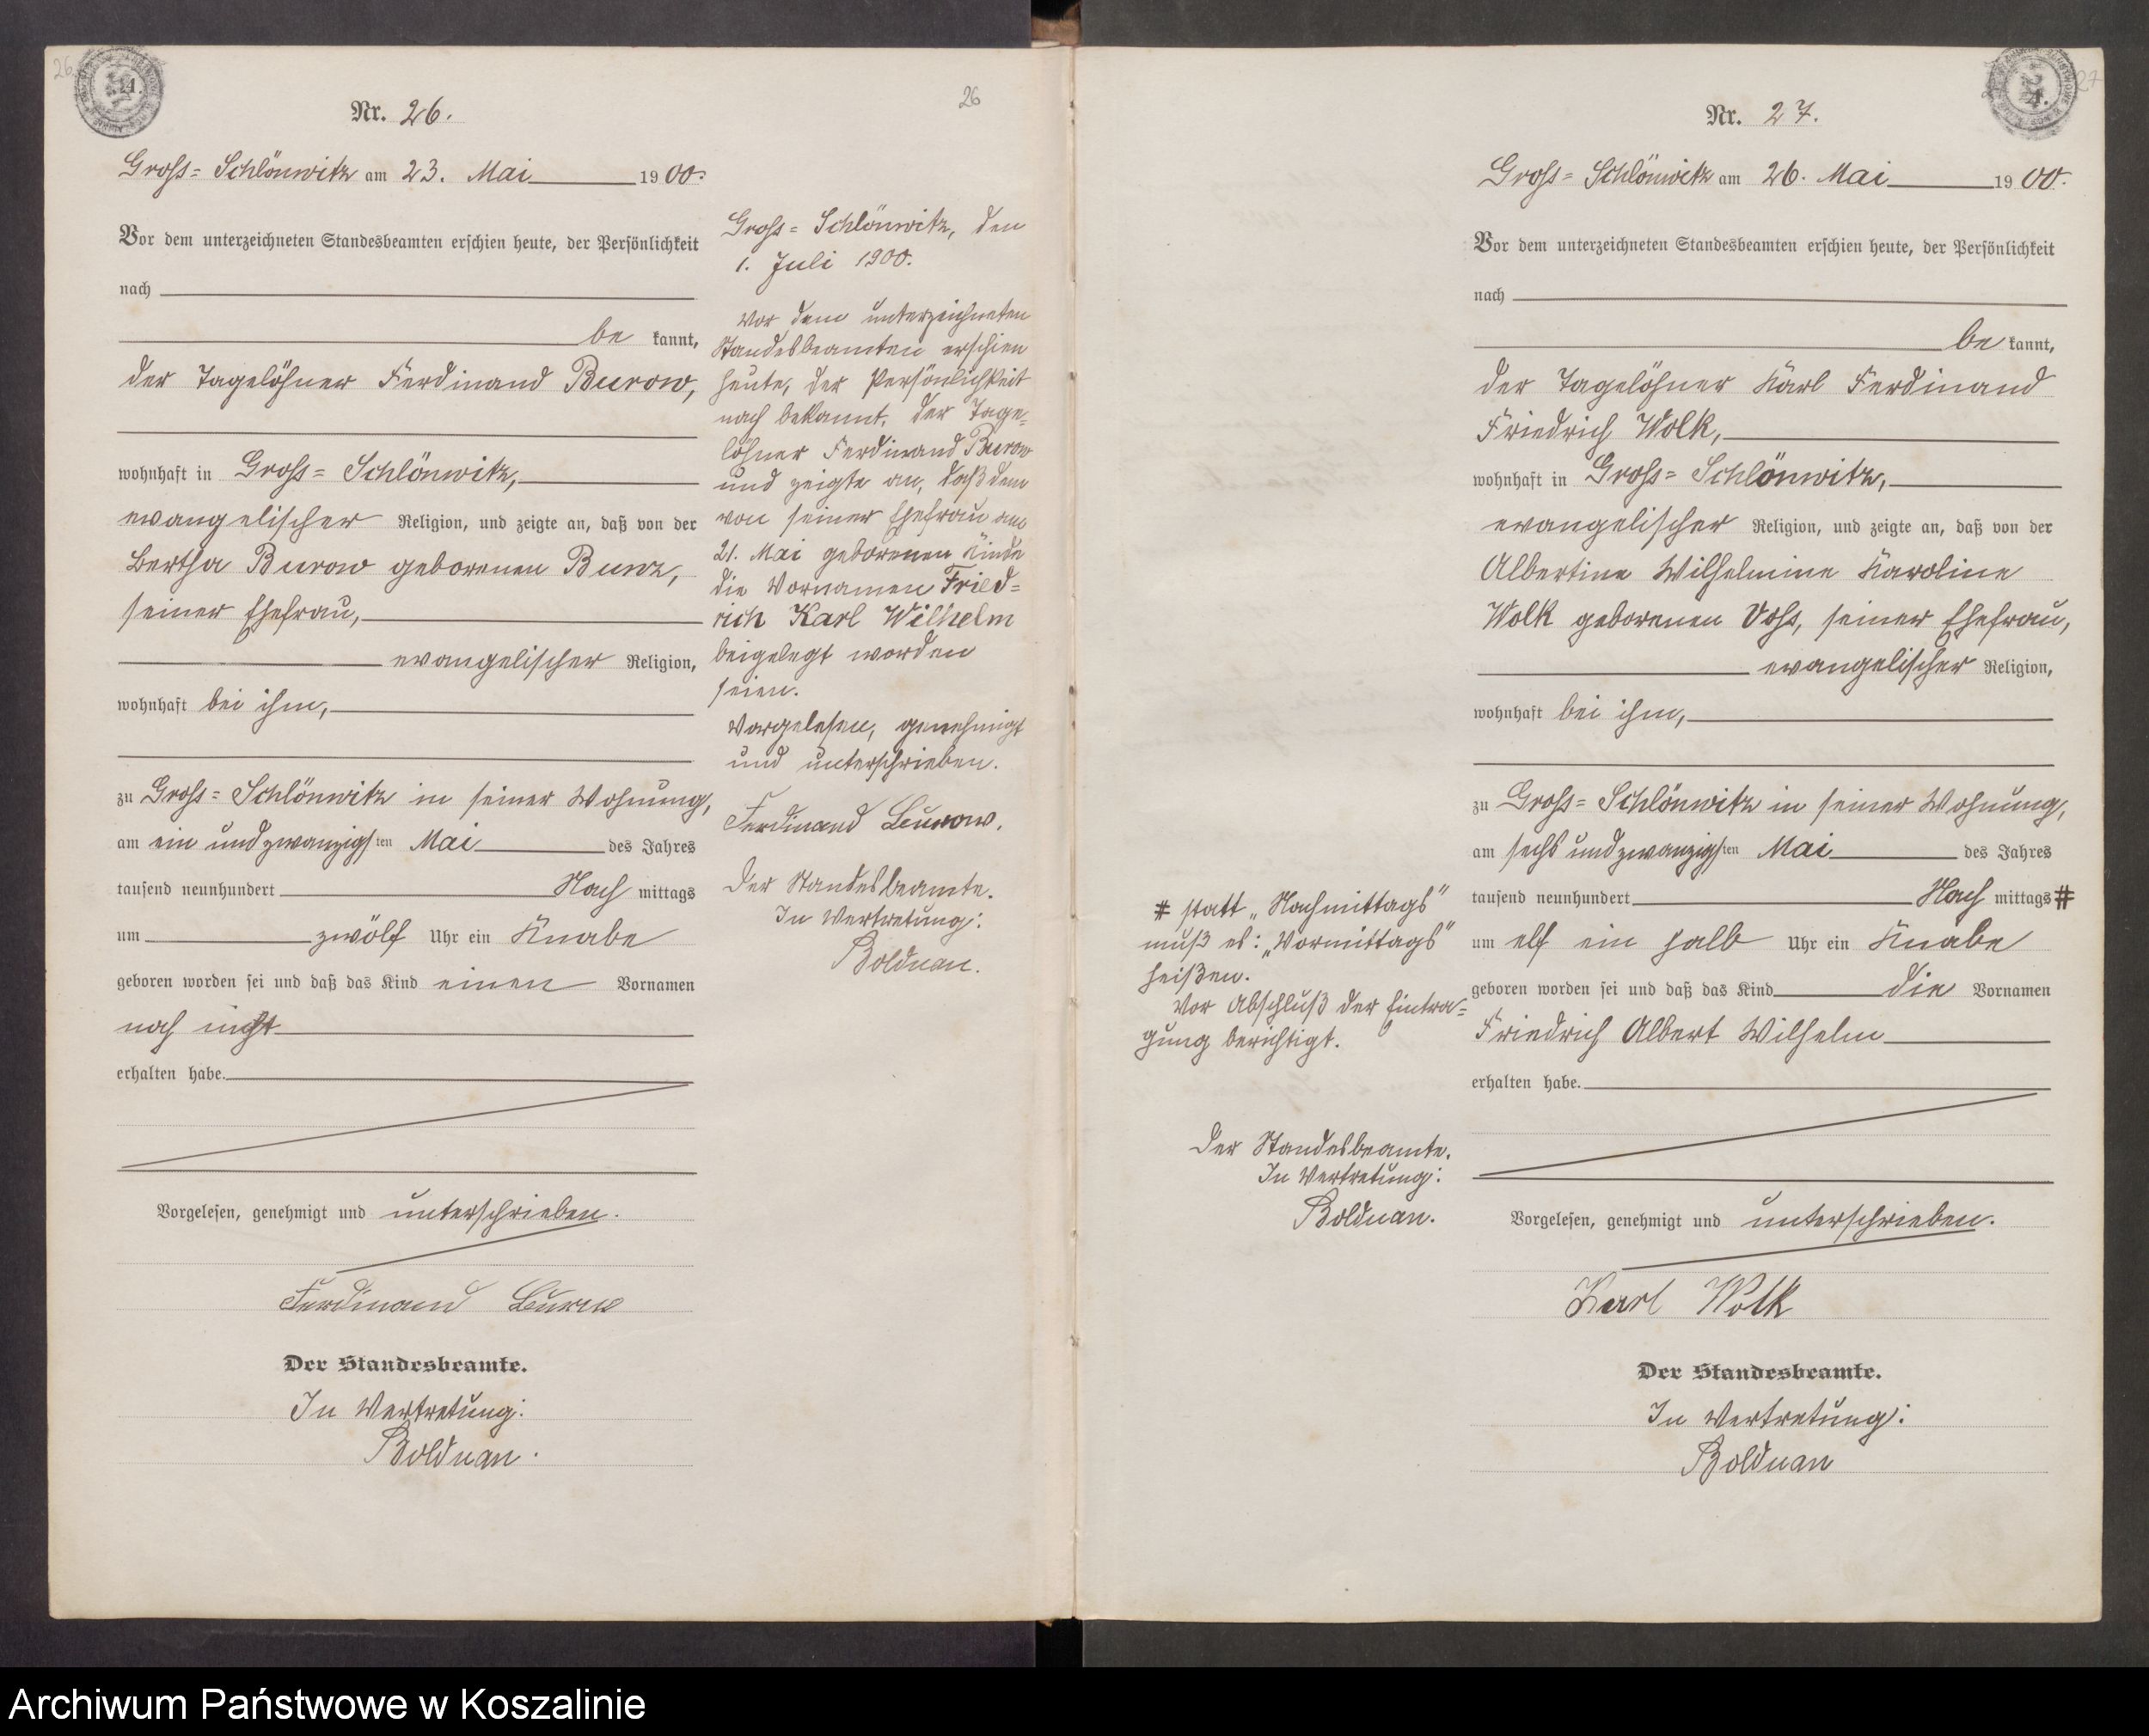 26
Nr. 26.
Groß-Schlönwitz am 23. Mai 1900.
Vor dem unterzeichneten Standesbeamten erschien heute, der Persönlichkeit
nach
be kannt,
der Tagelöhner Ferdinand Burow,
wohnhaft in Groß-Schlönwitz,
evangelischer Religion, und zeigte an, daß von der
Bertha Burow geborenen Bunz,
seiner Ehefrau,
evangelischer Religion,
wohnhaft bei ihm,
zu Groß-Schlönwitz in seiner Wohnung,
am ein und zwanzigsten Mai des Jahres
tausend neunhundert Nach mittags
um zwölf Uhr ein Knabe
geboren worden sei und daß das Kind einen Vornamen
noch nicht
erhalten habe.
Vorgelesen, genehmigt und unterschrieben.
Ferdinand Burow
Der Standesbeamte.
In Vertretung:
Bolduan.
26
Groß-Schlönwitz, den
1. Juli 1900.
Vor dem unterzeichneten
Standesbeamten erschien
heute, der Persönlichkeit
nach bekannt, der Tage-
löhner Ferdinand Burow
und zeigte an, daß dem
von seiner Ehefrau am
21. Mai geborenen Kinde
die Vornamen Fried-
rich Karl Wilhelm
beigelegt worden
seien.
Vorgelesen, genehmigt
und unterschrieben.
Ferdinand Burow.
Der Standesbeamte.
In Vertretung:
Bolduan.
27
Nr. 27.
Groß-Schlönwitz am 26. Mai 1900.
Vor dem unterzeichneten Standesbeamten erschien heute, der Persönlichkeit
nach
be kannt,
der Tagelöhner Karl Ferdinand
Friedrich Wolk,
wohnhaft in Groß-Schlönwitz,
evangelischer Religion, und zeigte an, daß von der
Albertine Wilhelmine Karoline
Wolk geborenen Voß, seiner Ehefrau,
evangelischer Religion,
wohnhaft bei ihm,
zu Groß-Schlönwitz in seiner Wohnung,
am sechs und zwanzigsten Mai des Jahres
tausend neunhundert Nach mittags #
um elf ein halb Uhr ein Knabe
geboren worden sei und daß das Kind die Vornamen
Friedrich Albert Wilhelm
erhalten habe.
Vorgelesen, genehmigt und unterschrieben.
Karl Wolk
Der Standesbeamte.
In Vertretung:
Bolduan
# statt „Nachmittags"
muß es: „Vormittags"
heißen.
Vor Abschluß der Eintra-
gung berichtigt.
Der Standesbeamte.
In Vertretung:
Bolduan.
Archiwum Państwowe w Koszalinie